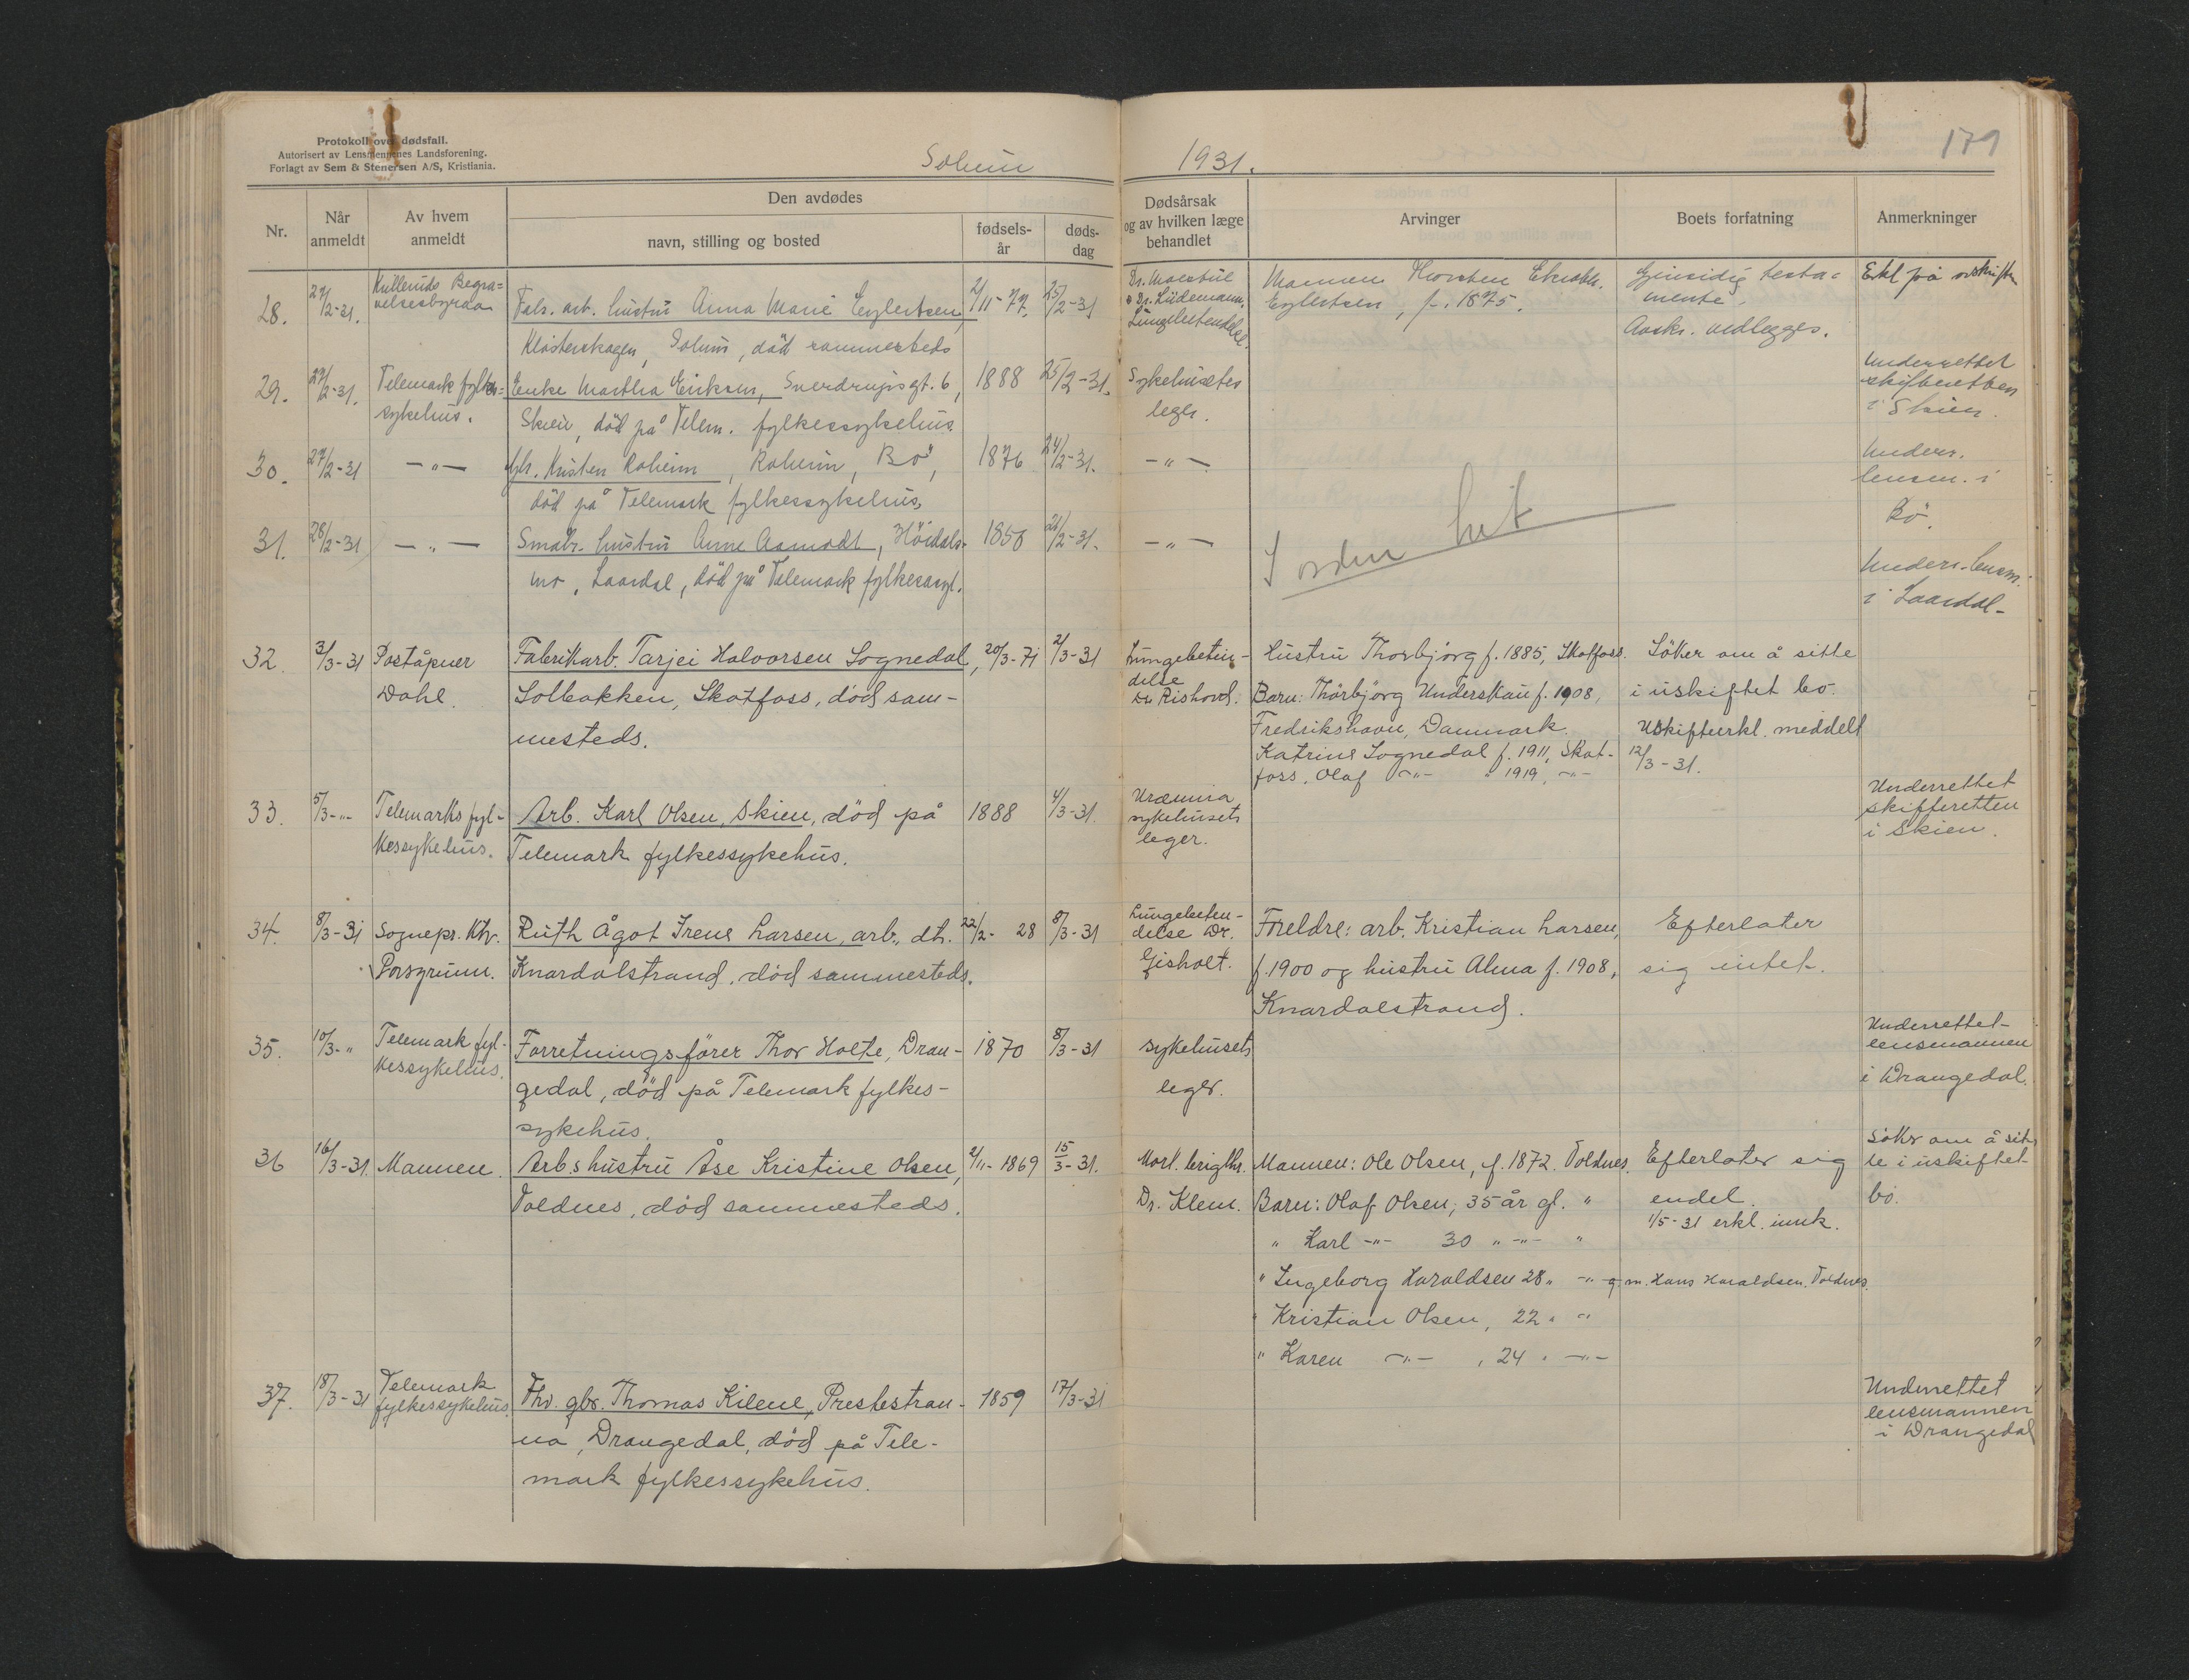 Protokoll over dødsfall.
Autorisert av Lensmennenes Landsforening.
Forlagt av Sem & Stenersen A/S, Kristiania.
Solum 1931. 179
Nr.
Når anmeldt
Av hvem anmeldt
Den avdødes
navn, stilling og bosted
fødsels-år
døds-dag
Dødsårsak og av hvilken læge behandlet
Arvinger
Boets forfatning
Anmerkninger
28. 27/2-31. Begra=
velsesbyraa Fabr. arb. hustru Anna Marie Eylertsen 2/11-77. 25/2-31
Klosterskogen, Solum, död sammesteds
Dr.
Dr. Lüdemann.
Lungebetendelse.
Mannen Thorsten
Eylertsen, f. 1875.
Gjensidig testa=
mente.
Avskr. vedlegges.
Erkl på avskriften
29. 27/2-31. Telemark fylkes=
sykehus.
Enke Martha Eriksen, Sverdrupsgt. 6, 1888 25/2-31.
Skien, död på Telem. fylkessykehus
Sykehusets
leger.
Underrettet
skifteretten
i Skien.
30. 27/2-31 —"— Kristen Roheim, Roheim, Bö, 1876 24/2-31. —"—
död på Telemark fylkessykehus,
Underr.
lensm. i
Bö.
31. 28/2-31 —"— Smabr. hustru Anne Aamodt, Höidals- 1858 —"—
mo, Laardal, död på Telemark fylkessyk.
I orden hit
Underr. lensm.
i Laardal-
32. 3/3-31 Poståpner
Dahl.
Fabrikarb. Tarjei Halvorsen Sognedal, 20/3-71 2/3-31
Solbakken, Skotfoss, död sam-
mesteds.
Lungebeten-
delse
Dr Rishovd.
Hustru Thorbjörg f. 1885, Skotfoss.
Barn: Thorbjörg f. 1908,
Fredrikshavn, Danmark.
Katrine Sognedal f. 1911, Skot-
foss, Olaf —"— " 1919, —"—
Söker om å sitte
i uskiftet bo.
Uskifteerkl. meddelt
12/3-31.
33. 5/3-"- Telemarks fyl-
kessykehus.
Arb. Karl Olsen, Skien, död på 1888 4/3-31.
Telemark fylkessykehus.
Uræmia
sykehusets
leger.
Underrettet
skifteretten
i Skien.
34. 8/3-31 Sognepr. Ktr.
Porsgrunn.
Ruth Ågot Irene Larsen, arb. dt. 22/2-28 8/3-31
Knardalstrand, död sammesteds.
Lungebeten-
delse Dr.
Gisholt.
Foreldre: arb. Kristian Larsen,
f. 1900 og hustru Alma f. 1908,
Knardalstrand.
Efterlater
sig intet.
35. 10/3-" Telemark fyl-
kessykehus.
Forretningsförer Thor Holte, Dran- 1870 8/3-31
gedal, död på Telemark fylkes-
sykehus.
sykehusets
leger.
Underrettet
lensmannen
i Drangedal.
36 16/3-31. Mannen. Arb.s hustru Åse Kristine Olsen, 2/11-1869 15/3-31.
Voldnes, död sammesteds.
Dr. Klem.
Mannen: Ole Olsen, f. 1872. Voldnes.
Barn: Olaf Olsen, 35 år gl. "
" Karl —"— 30 " —"— "
" Ingeborg Haraldsen 28 " —"— g. m. Hans Haraldsen, Voldnes.
" Kristian Olsen, 22 " "
" Karen —"—, 24 " —"—
Efterlater sig
endel.
1/5-31 erkl. innk.
Söker om å sit-
te i uskiftet
bo.
37. 18/3-31 Telemark
fylkessykehus.
Fhv. gbr. Thomas Kilene, Prestestran- 1859 17/3-31
na, Drangedal, död på Tele-
mark fylkessykehus.
Underrettet
lensmannen
i Drangedal